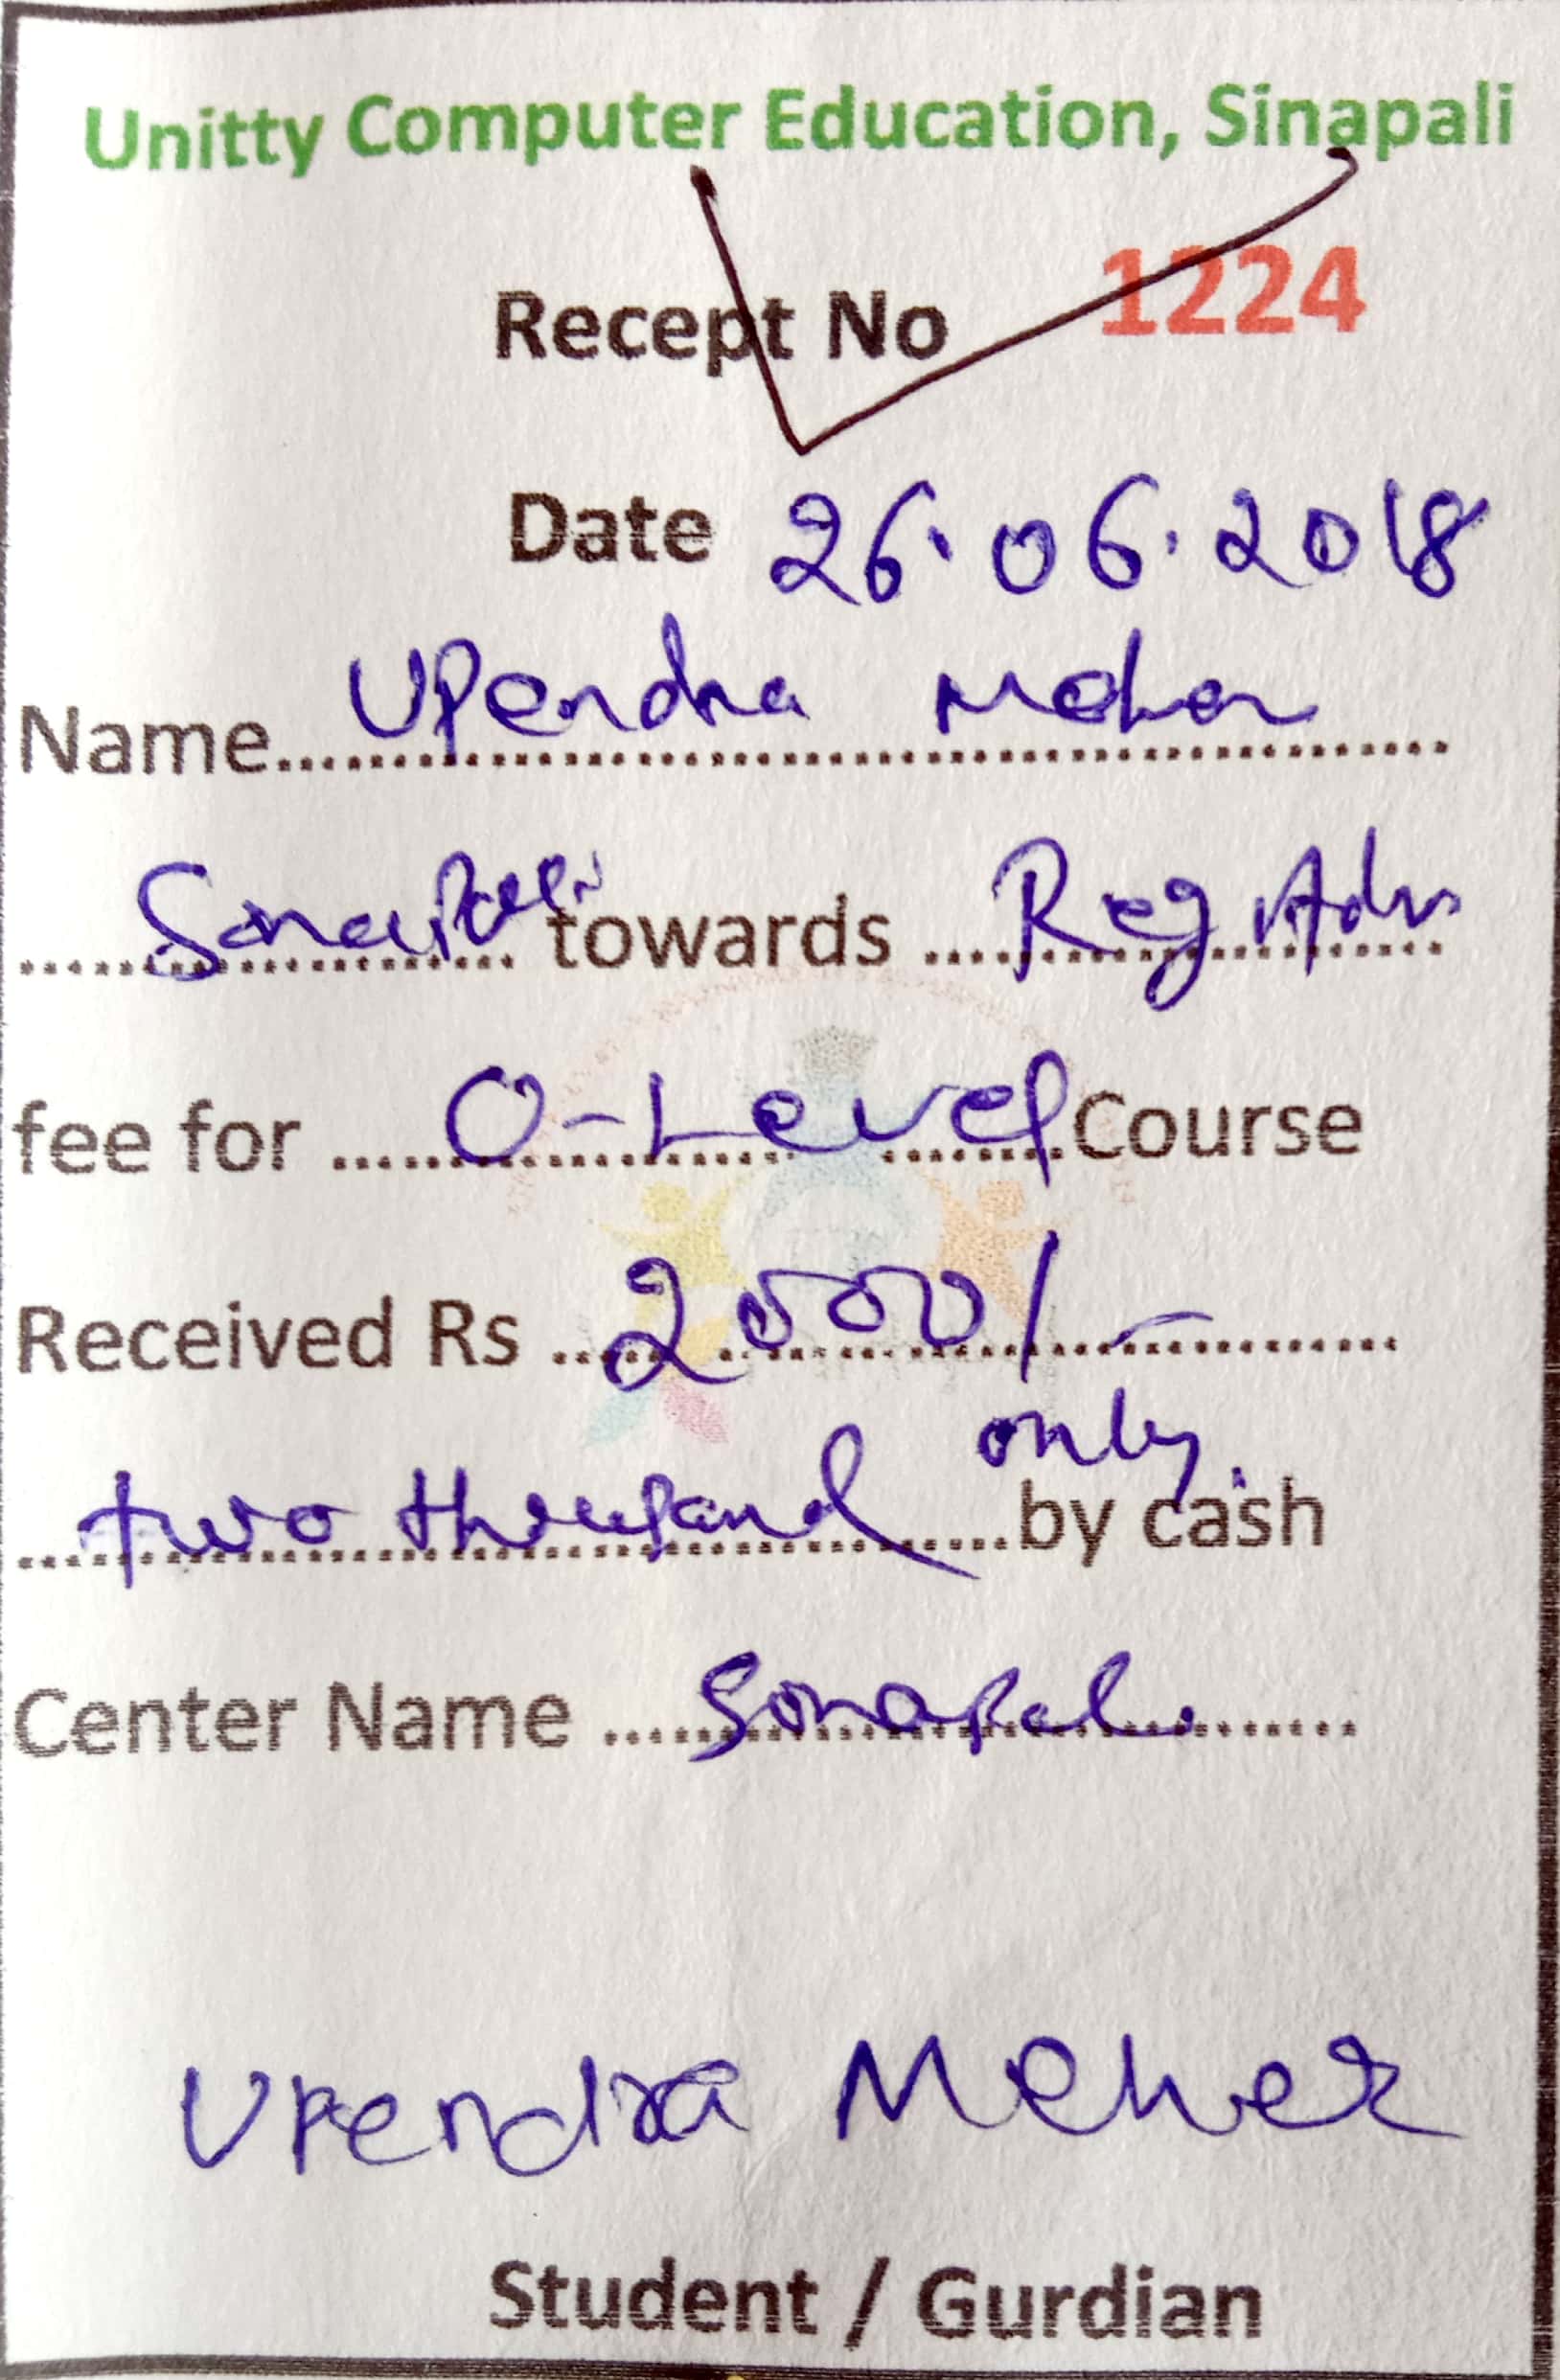 Unitty Computer Education, Sinapali
Recept No 1224
Date 26.06.2018
Name.......Upendra Meher.......
.......Sonapali towards .......Reg Adm
fee for .......O-Level.......Course
Received Rs .......2000/-.......
.......two thousand only.......by cash
Center Name .......Sonapali.......
Upendra Meher
Student / Gurdian